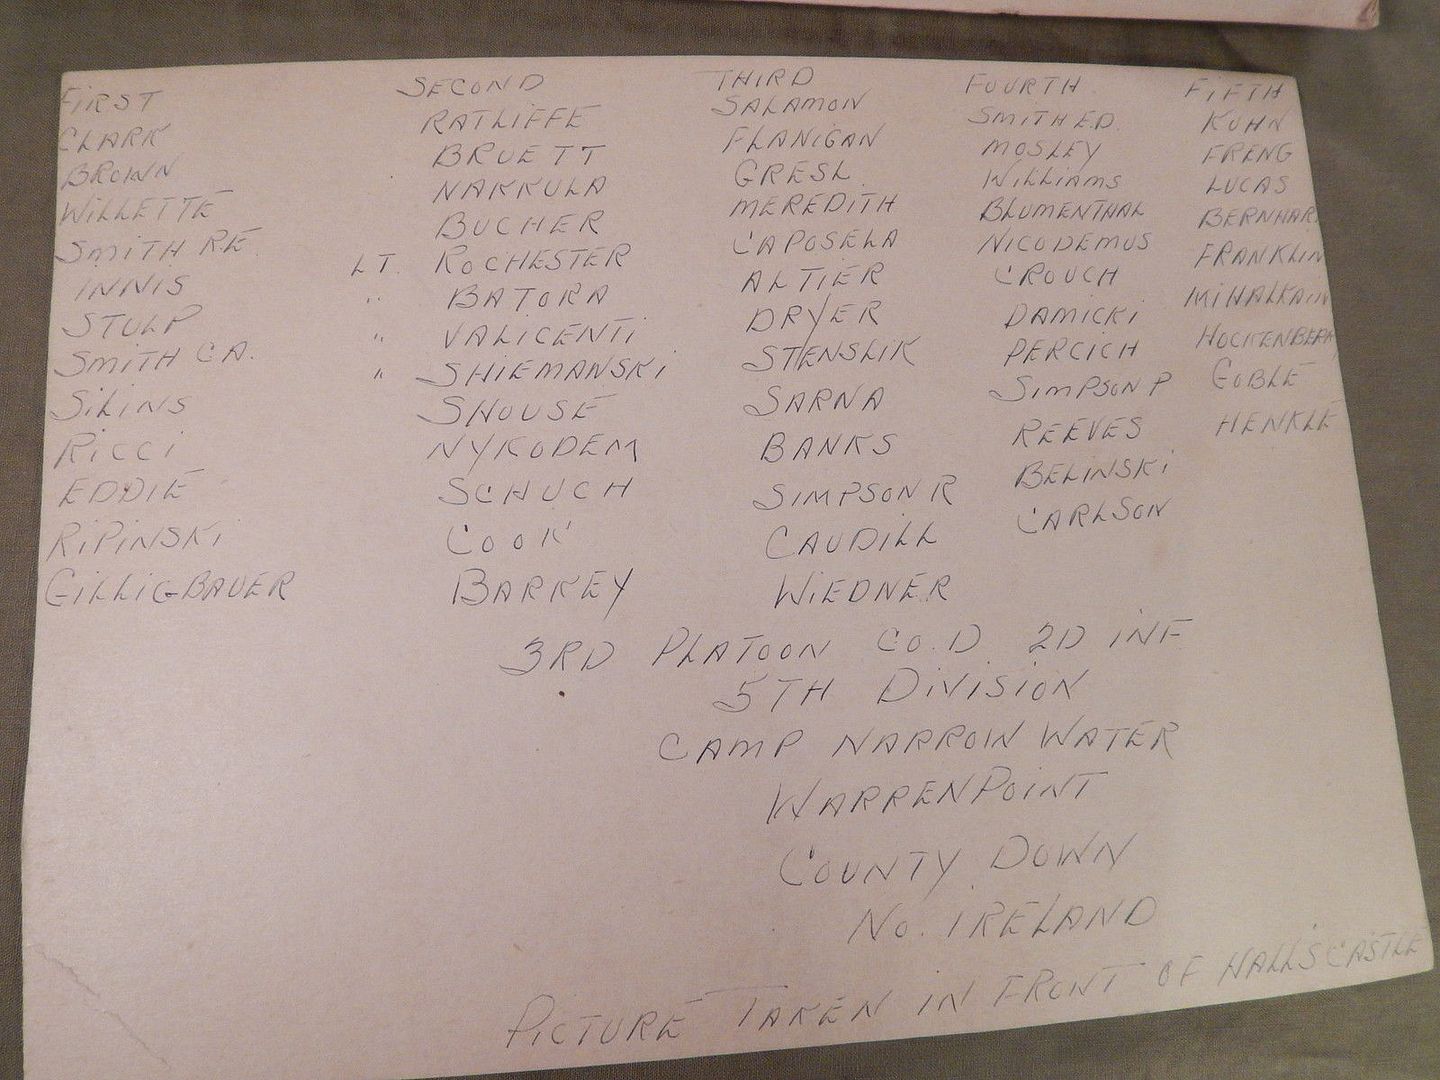 FIRST SECOND THIRD FOURTH FIFTH
CLARK RATLIFFE SALAMON SMITH ED. KUHN
BROWN BRUETT FLANIGAN MOSLEY FRENG
WILLETTE NAKKULA GRESL WILLIAMS LUCAS
SMITH RE. BUCHER MEREDITH BLUMENTHAL BERNHAR
INNIS LT. ROCHESTER CAPOSELA NICODEMUS FRANKLIN
STULP " BATORA ALTIER CROUCH
SMITH CA. " VALICENTI DRYER DAMICKI HOCKENBERR
SILINS " SHIEMANSKI STENSLIK PERCICH GOBLE
RICCI SHOUSE SARNA SIMPSON P HENKLE
EDDIE NYKODEM BANKS REEVES
RIPINSKI SCHUCH SIMPSON R BELINSKI
GILLIGBAUER COOK CAUDILL CARLSON
BARKEY WIEDNER
3RD PLATOON CO. D 2D INF
5TH DIVISION
CAMP NARROW WATER
WARRENPOINT
COUNTY DOWN
NO. IRELAND
PICTURE TAKEN IN FRONT OF HALL'S CASTLE